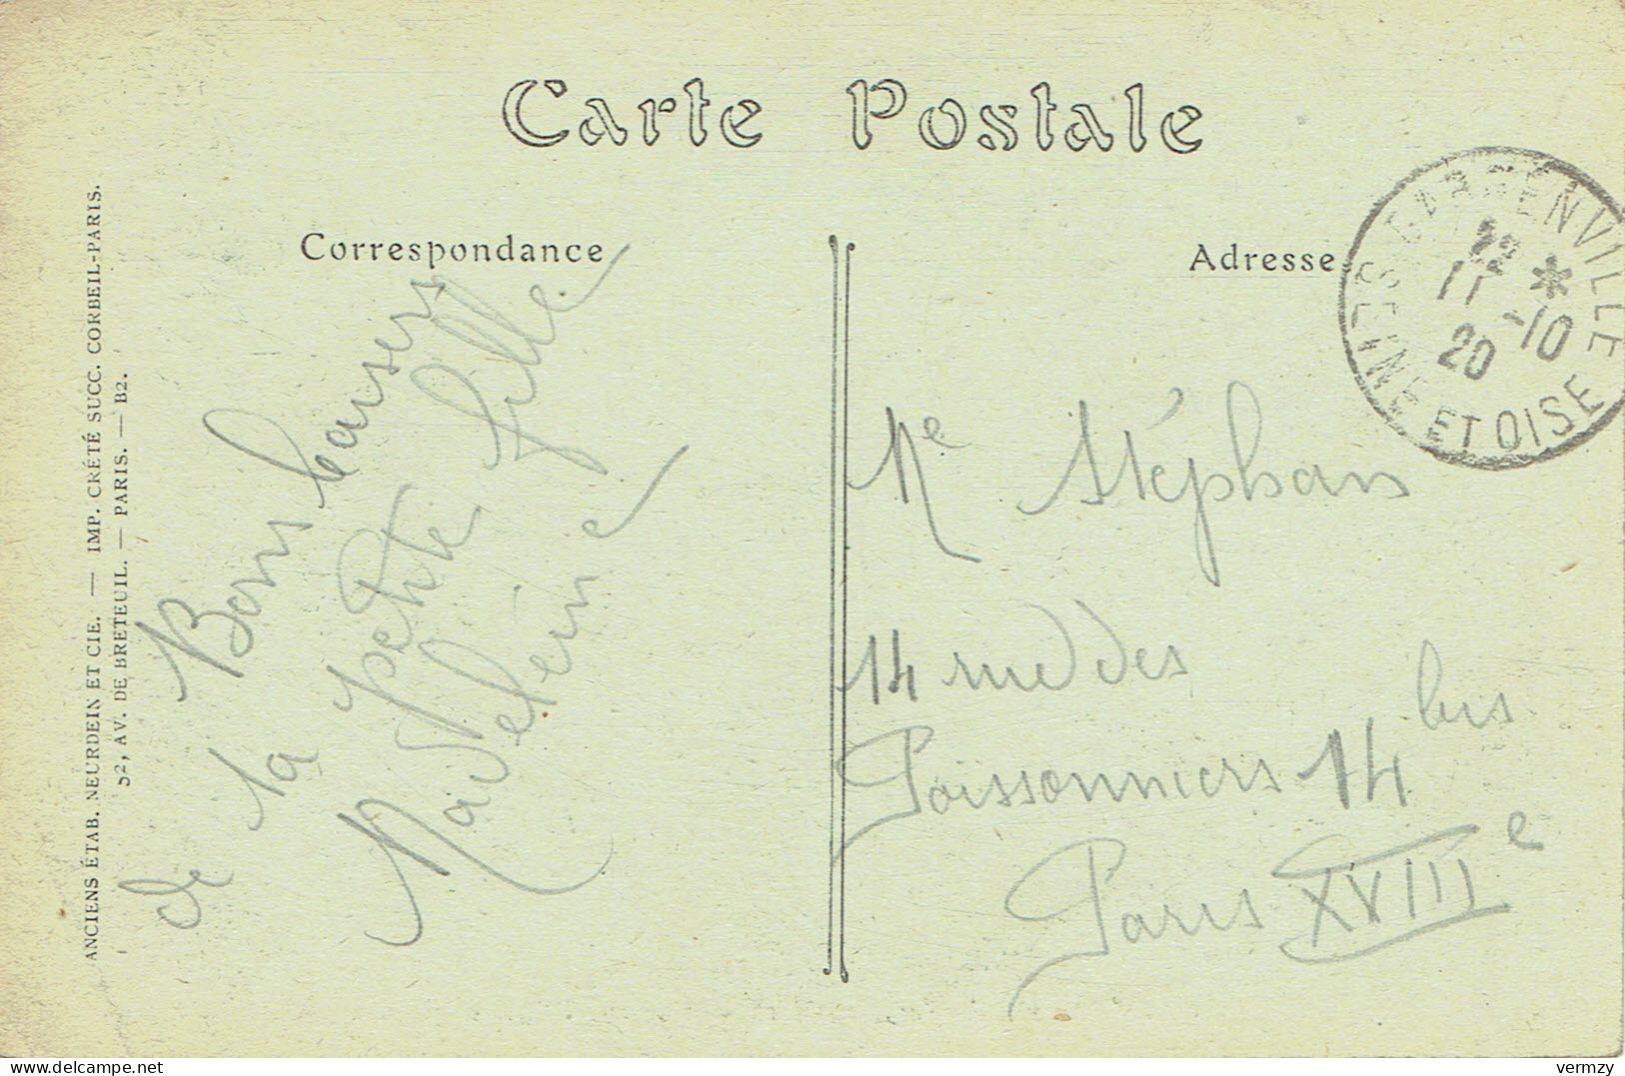 Carte Postale
Correspondance
Adresse
GARGENVILLE
SEINE ET OISE
22 *
11 -10
20
Bons baisers
de la petite fille
Madeleine
Me Stéphan
14 rue des
Poissonniers 14 bis
Paris XVIIIe
ANCIENS ÉTAB. NEURDEIN ET CIE. — IMP. CRÉTÉ SUCC. CORBEIL-PARIS.
52, AV. DE BRETEUIL. — PARIS. — B2.
delcampe.net
vermzy